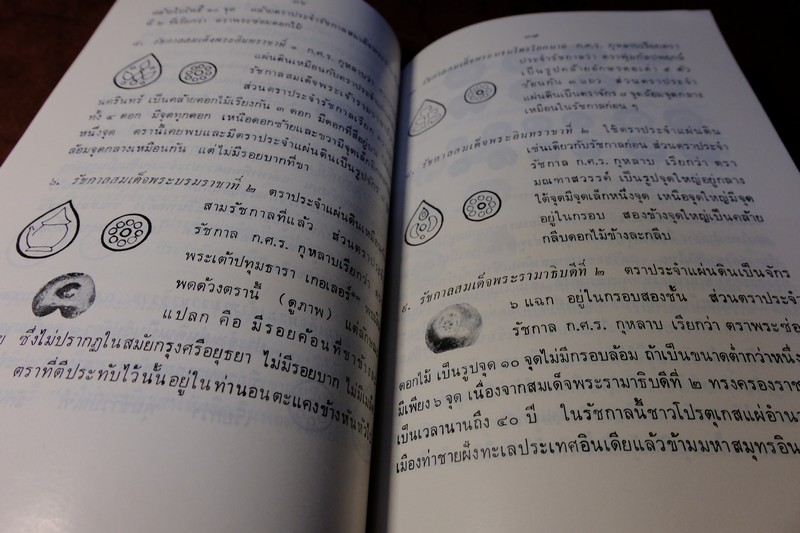 ๕. รัชกาลสมเด็จพระอินทราชาที่ ๑ ก.ศ.ร. กุหลาบว่า
แผ่นดินเหมือนกับตราประจำ
รัชกาลสมเด็จพระเจ้ารามรา
ส่วนตราประจำรัชกาลเรียก
นครินทร์ เป็นคล้ายดอกไม้เรียงกัน ๓ ดอก มีดอกที่สี่อยู่
ทั้ง ๔ ดอก มีจุดทุกดอก เหนือดอกซ้ายและขวามีจุดเล็ก
หนึ่งจุด ตรานี้เคยพบและมีตราประจำแผ่นดินเป็นรูปจักร
ล้อมจุดกลางเหมือนกัน แต่ไม่มีรอยบากที่ขา
๖. รัชกาลสมเด็จพระบรมราชาที่ ๒ ตราประจำแผ่นดินเหมือน
สามรัชกาลที่แล้ว ส่วนตราประจำ
รัชกาล ก.ศ.ร. กุหลาบเรียกว่า
พระเต้าปทุมธารา เกอเลอร์
พดด้วงตรานี้ (ดูภาพ) แต่
แปลก คือ มีรอยค้อนที่ขาข้าง
ซึ่งไม่ปรากฏในสมัยกรุงศรีอยุธยา ไม่มีรอยบาก ไม่มี
ตราที่ตีประทับไว้นั้นอยู่ในท่านอนตะแคงข้างหันหัวไป
๑๗
รัชกาลสมเด็จพระบรมไตรโลกนาถ ก.ศ.ร. กุหลาบเรียกตรา
ประจำรัชกาลว่า
เป็นรูปคล้ายอักษรตัวเต่า ๕ ตัว
ซ้อนกัน ๓ แถว ส่วนตราประจำ
แผ่นดินเป็นตราจักร ๗ จุดล้อมจุดกลาง
เหมือนในรัชกาลก่อน ๆ
รัชกาลสมเด็จพระอินทราชาที่ ๒ ใช้ตราประจำแผ่นดิน
เช่นเดียวกับรัชกาลก่อน ส่วนตราประจำ
รัชกาล ก.ศ.ร. กุหลาบ เรียกว่า ตรา
มณฑาสวรรค์ เป็นรูปจุดใหญ่อยู่กลาง
ใต้จุดมีจุดเล็กหนึ่งจุด เหนือจุดใหญ่มีจุด
อยู่ในกรอบ สองข้างจุดใหญ่เป็นคล้าย
กลีบดอกไม้ข้างละกลีบ
๙. รัชกาลสมเด็จพระรามาธิบดีที่ ๒ ตราประจำแผ่นดินเป็นจักร
๖ แฉก อยู่ในกรอบสองชั้น ส่วนตราประจำ
รัชกาล ก.ศ.ร. กุหลาบ เรียกว่า ตราพระซ่อ
ดอกไม้ เป็นรูปจุด ๑๐ จุดไม่มีกรอบล้อม ถ้าเป็นขนาดต่ำกว่าหนึ่ง
มีเพียง ๖ จุด เนื่องจากสมเด็จพระรามาธิบดีที่ ๒ ทรงครองราช
เป็นเวลานานถึง ๔๐ ปี ในรัชกาลนี้ชาวโปรตุเกสแผ่อำนา
เมืองท่าชายฝั่งทะเลประเทศอินเดียแล้วข้ามมหาสมุทรอิน